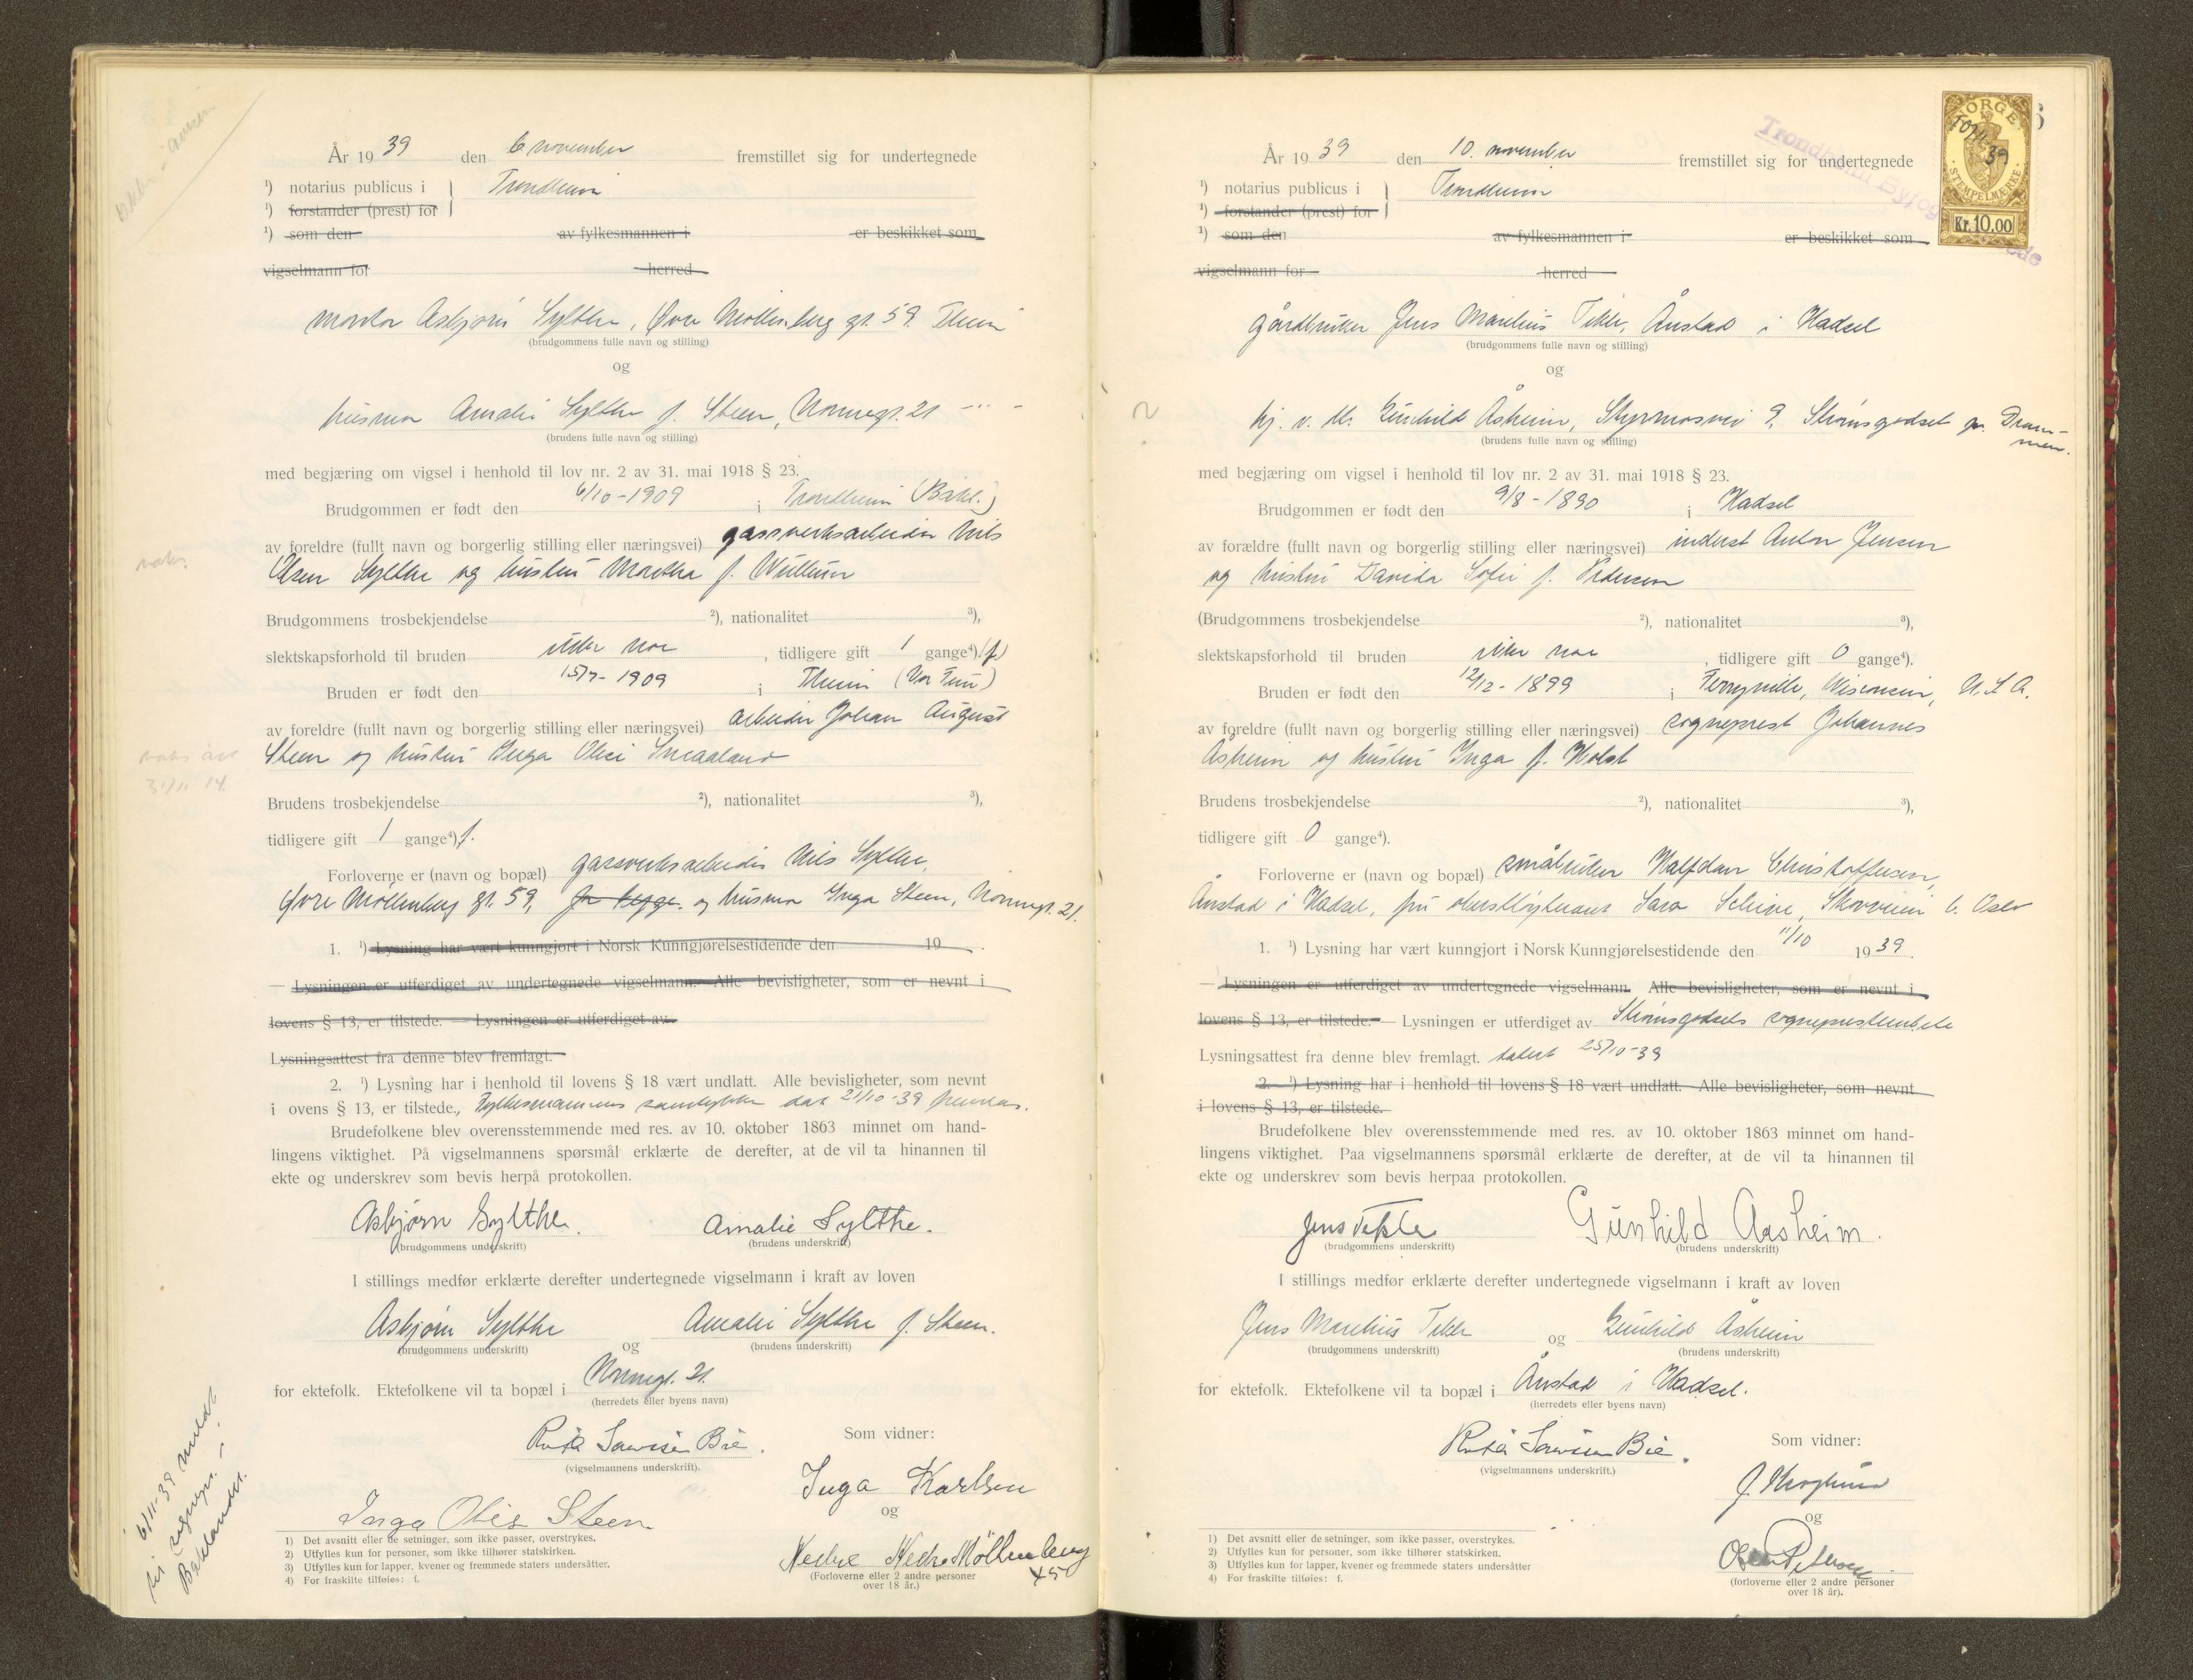 År 1939 den 6 november fremstillet sig for undertegnede
¹) notarius publicus i } Trondheim
¹) forstander (prest) for
¹) som den av fylkesmannen i er beskikket som
vigselmann for herred
montør Asbjørn Sylthe, Øvre Møllenberg gt. 59. Th.eim
(brudgommens fulle navn og stilling)
og
husmor Amalie Sylthe f. Steen, Nonnegt. 21 -"-
(brudens fulle navn og stilling)
med begjæring om vigsel i henhold til lov nr. 2 av 31. mai 1918 § 23.
Brudgommen er født den 6/10-1909 i Trondheim (Bakl.)
av foreldre (fullt navn og borgerlig stilling eller næringsvei) gassverksarbeider Nils
Olsen Sylthe og hustru Martha f. Wullum
Brudgommens trosbekjendelse ²), nationalitet ³),
slektskapsforhold til bruden ikke nær, tidligere gift 1 gange⁴) (f)
Bruden er født den 15/7-1909 i Th.eim (Vor Frue)
av foreldre (fullt navn og borgerlig stilling eller næringsvei) arbeider Johan August
Steen og hustru Inga Olise Smaaland
Brudens trosbekjendelse ²), nationalitet ³),
tidligere gift 1 gange⁴) f.
Forloverne er (navn og bopæl) gassverksarbeider Nils Sylthe,
Øvre Møllenberg gt. 59, for begge. og husmor Inga Steen, Nonnegt. 21.
1. ¹) Lysning har vært kunngjort i Norsk Kunngjørelsestidende den 19 .
— Lysningen er utferdiget av undertegnede vigselmann. Alle bevisligheter, som er nevnt i
lovens § 13, er tilstede. — Lysningen er utferdiget av
Lysningsattest fra denne blev fremlagt.
2. ¹) Lysning har i henhold til lovens § 18 vært undlatt. Alle bevisligheter, som nevnt
i ovens § 13, er tilstede., Fylkesmannens samtykke dat 21/10-39
Brudefolkene blev overensstemmende med res. av 10. oktober 1863 minnet om hand-
lingens viktighet. På vigselmannens spørsmål erklærte de derefter, at de vil ta hinannen til
ekte og underskrev som bevis herpå protokollen.
Asbjørn Sylthe. Amalie Sylthe.
(brudgommens underskrift) (brudens underskrift)
I stillings medfør erklærte derefter undertegnede vigselmann i kraft av loven
Asbjørn Sylthe og Amalie Sylthe f. Steen.
(brudgommens underskrift) (brudens underskrift)
for ektefolk. Ektefolkene vil ta bopæl i Nonnegt. 21.
(herredets eller byens navn)
Som vidner:
(vigselmannens underskrift).
Inga Karlsen
og
Inga Olise Steen
Nedre Møllenberg
45
(Forloverne eller 2 andre personer
over 18 år.)
1) Det avsnitt eller de setninger, som ikke passer, overstrykes.
2) Utfylles kun for personer, som ikke tilhører statskirken.
3) Utfylles kun for lapper, kvener og fremmede staters undersåtter.
4) For fraskilte tilføies: f.
6/11-39 meldt
til sognepr. i
Baklandet.
År 1939 den 10. november fremstillet sig for undertegnede
¹) notarius publicus i } Trondheim
¹) forstander (prest) for
¹) som den av fylkesmannen i er beskikket som
vigselmann for herred
NORGE
STEMPELMERKE
Kr. 10.00
gårdbruker Jens Marelius Tekle, Ånstad i Hadsel
(brudgommens fulle navn og stilling)
og
Gunhild Åsheim, Styrmosvei 9. Strømsgodset pr. Dram-
men.
(brudens fulle navn og stilling)
med begjæring om vigsel i henhold til lov nr. 2 av 31. mai 1918 § 23.
Brudgommen er født den 9/8-1890 i Hadsel
av forældre (fullt navn og borgerlig stilling eller næringsvei) inderst Anton Jensen
og hustru Davida Sofie f. Pedersen
(Brudgommens trosbekjendelse ²), nationalitet ³),
slektskapsforhold til bruden ikke nær, tidligere gift 0 gange⁴).
Bruden er født den 12/12-1899 i Ferryville, Wisconsin, U.S.A.
av foreldre (fullt navn og borgerlig stilling eller næringsvei) sogneprest Johannes
Åsheim og hustru Inga f. Holst
Brudens trosbekjendelse ²), nationalitet ³),
tidligere gift 0 gange⁴).
Forloverne er (navn og bopæl) småbruker Halfdan Christoffersen,
Ånstad i Hadsel, fru oberstløytnant Sara Scheive, Skovveien 6. Oslo
1. ¹) Lysning har vært kunngjort i Norsk Kunngjørelsestidende den 11/10 1939.
— Lysningen er utferdiget av undertegnede vigselmann. Alle bevisligheter, som er nevnt i
lovens § 13, er tilstede. — Lysningen er utferdiget av Strømsgodsets sogneprestembete
Lysningsattest fra denne blev fremlagt. datert 25/10-39
2. ¹) Lysning har i henhold til lovens § 18 vært undlatt. Alle bevisligheter, som nevnt
i lovens § 13, er tilstede.
Brudefolkene blev overensstemmende med res. av 10. oktober 1863 minnet om hand-
lingens viktighet. Paa vigselmannens spørsmål erklærte de derefter, at de vil ta hinannen til
ekte og underskrev som bevis herpaa protokollen.
Jens Tekle Gunhild Aasheim.
(brudgommens underskrift) (brudens underskrift)
I stillings medfør erklærte derefter undertegnede vigselmann i kraft av loven
Jens Marelius Tekle og Gunhild Åsheim
(brudgommens underskrift) (brudens underskrift)
for ektefolk. Ektefolkene vil ta bopæl i Ånstad i Hadsel.
(herredets eller byens navn)
Som vidner:
(vigselmannens underskrift.)
og
(forloverne eller 2 andre personer
over 18 år).
1) Det avsnitt eller de setninger, som ikke passer, overstrykes.
2) Utfylles kun for personer, som ikke tilhører statskirken.
3) Utfylles kun for lapper, kvener og fremmede staters undersåtter
4) For fraskilte tilføies: f.